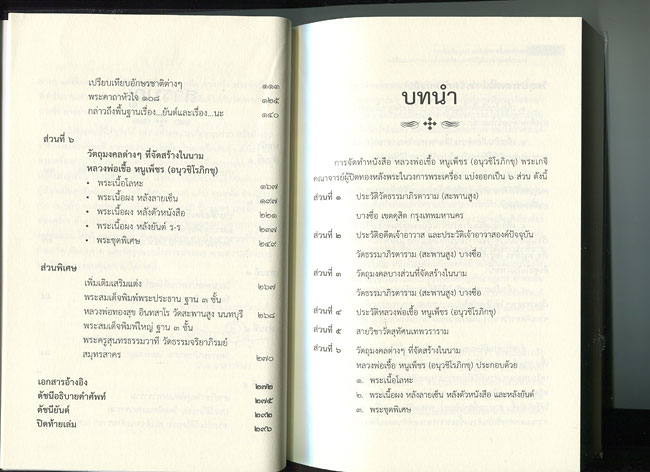 เปรียบเทียบอักษรชาติต่างๆ ๑๑๑
พระคาถาหัวใจ ๑๐๘ ๑๒๕
กล่าวถึงพื้นฐานเรื่อง...ยันต์และเรื่อง...นะ ๑๔๐
ส่วนที่ ๖
วัตถุมงคลต่างๆ ที่จัดสร้างในนาม
หลวงพ่อเชื้อ หนูเพ็ชร (อนุวชิโรภิกขุ)
• พระเนื้อโลหะ ๑๖๗
• พระเนื้อผง หลังลายเซ็น ๑๙๗
• พระเนื้อผง หลังตัวหนังสือ ๒๒๑
• พระเนื้อผง หลังยันต์ ร-ร ๒๓๗
• พระชุดพิเศษ ๒๔๙
ส่วนพิเศษ
เพิ่มเติมเสริมแต่ง ๒๖๗
พระสมเด็จพิมพ์พระประธาน ฐาน ๓ ชั้น
หลวงพ่อทองสุข อินทสาโร วัดสะพานสูง นนทบุรี ๒๖๘
พระสมเด็จพิมพ์ใหญ่ ฐาน ๓ ชั้น
พระครูสุนทรธรรมวาที วัดธรรมจริยาภิรมย์
สมุทรสาคร ๒๗๐
เอกสารอ้างอิง ๒๗๒
ดัชนีอธิบายคำศัพท์ ๒๗๕
ดัชนียันต์ ๒๙๒
ปิดท้ายเล่ม ๒๙๖
บทนำ
การจัดทำหนังสือ หลวงพ่อเชื้อ หนูเพ็ชร (อนุวชิโรภิกขุ) พระเกจิ
คณาจารย์ผู้ปิดทองหลังพระในวงการพระเครื่อง แบ่งออกเป็น ๖ ส่วน ดังนี้
ส่วนที่ ๑ ประวัติวัดธรรมาภิรตาราม (สะพานสูง)
บางซื่อ เขตดุสิต กรุงเทพมหานคร
ส่วนที่ ๒ ประวัติอดีตเจ้าอาวาส และประวัติเจ้าอาวาสองค์ปัจจุบัน
วัดธรรมาภิรตาราม (สะพานสูง) บางซื่อ
ส่วนที่ ๓ วัตถุมงคลบางส่วนที่จัดสร้างในนาม
วัดธรรมาภิรตาราม (สะพานสูง) บางซื่อ
ส่วนที่ ๔ ประวัติหลวงพ่อเชื้อ หนูเพ็ชร (อนุวชิโรภิกขุ)
ส่วนที่ ๕ สายวิชาวัดสุทัศนเทพวราราม
ส่วนที่ ๖ วัตถุมงคลต่างๆ ที่จัดสร้างในนาม
หลวงพ่อเชื้อ หนูเพ็ชร (อนุวชิโรภิกขุ) ประกอบด้วย
๑. พระเนื้อโลหะ
๒. พระเนื้อผง หลังลายเซ็น หลังตัวหนังสือ และหลังยันต์
๓. พระชุดพิเศษ